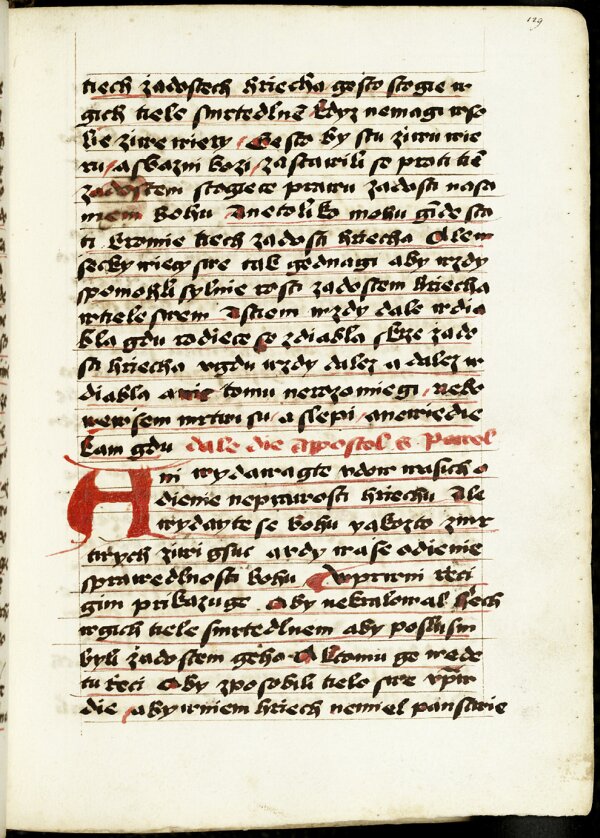 129
tiech zadostech hriecha gesto stogie w
gich tiele smrtedlnē kdyz nemagi wso
bie ziwe wiery Gesto by stu ziwu wie
ru a sbazni bozi zastawili se proti tiē
zadostem stogiece prawu zadosti nasa
mem bohu Anetoliko mohu gīde sta
ti kromie tiech zadosti hriecha Alem
secky wiecy swe tak gednagi aby wzdy
spomohli sylnie rosti zadostem hriecha
wtiele swem Astiem wzdy dale wdia
bla gdu rodiece se zdiabla skrze zado
sti hriecha wgdu wzdy dalez a dalez w
diabla a nic tomu nerozomiegi nebo
wewisem mrtwi su a slepi anewiedie
kam gdu dale die Apostol s Pawel
Ani wydawagte vdow wasich o
dienie neprawosti hriechu Ale
wydayte se bohu yakozto zmr
twych ziwi gsuc a vdy wase odienie
sprawedlnosti bohu Wprwni reci
gim prikazuge Aby nekralowal hrech
wgich tiele smrtedlnem aby poslusni
byli zadostem geho A ktomu ge wede
tu reci Aby zposobili tielo swe
die aby wniem hriech nemiel panstwie